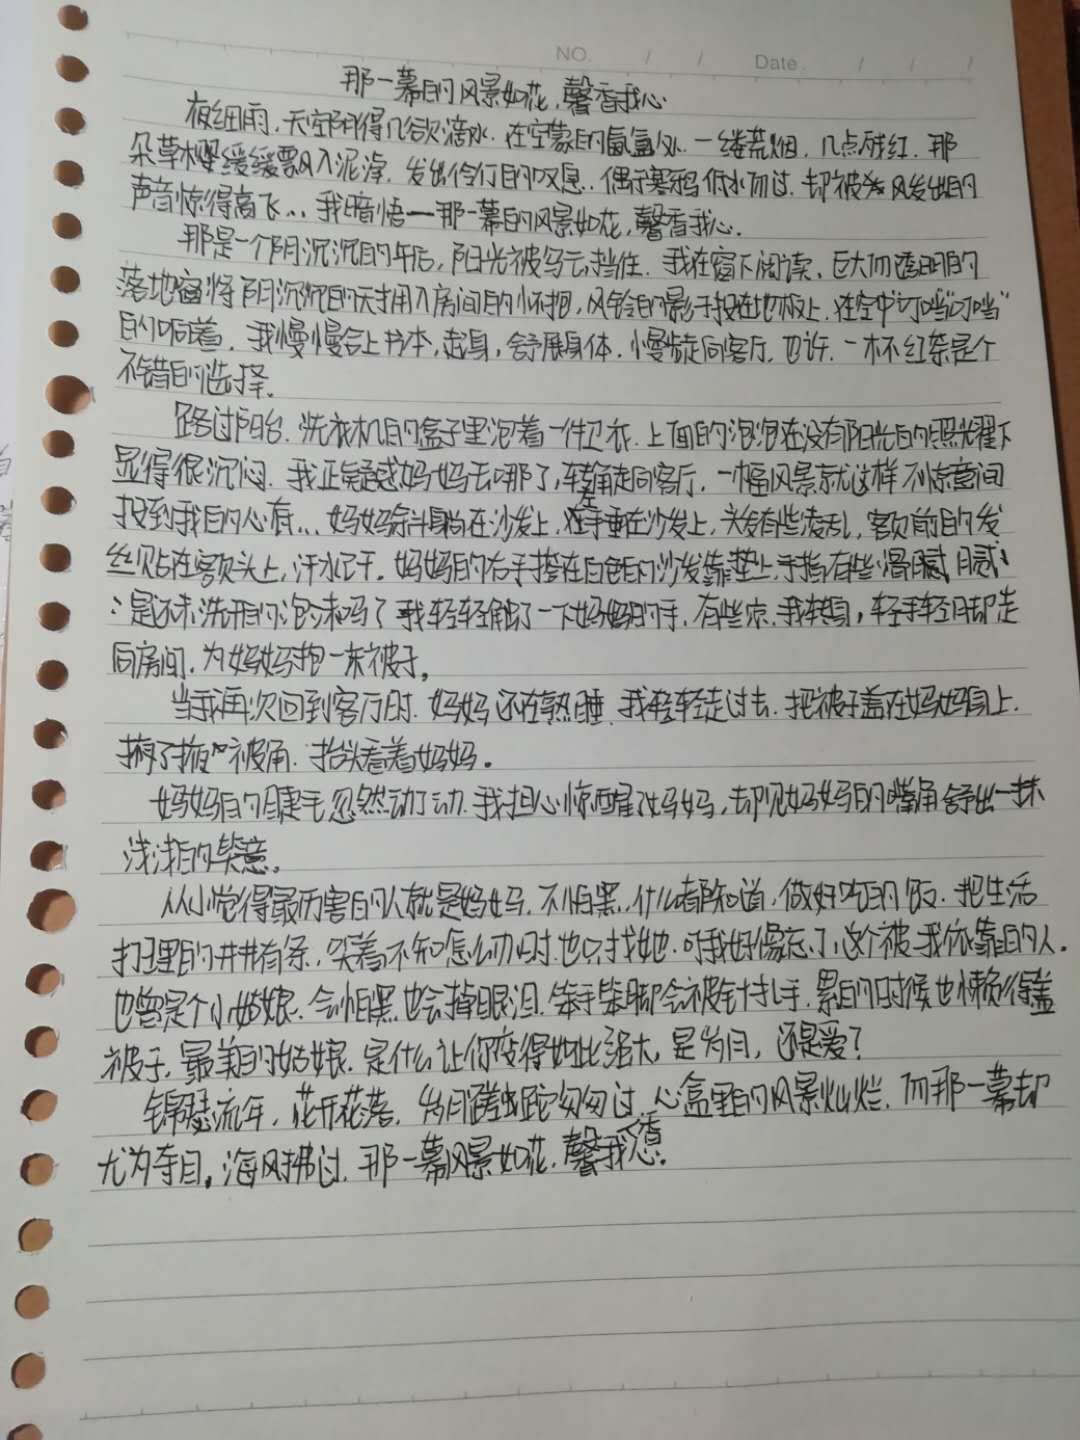 NO.    /    /    Date.    /    /    /
那一幕的风景如花,馨香我心
夜细雨,天空阴得几欲滴水.在空蒙的氤氲处.一缕荒烟.几点残红.那
朵草樱缓缓飘入泥淖.发出伶仃的叹息.偶尔寒鸦低水而过.却被风发出的
声音惊得高飞...我暗悟—那一幕的风景如花,馨香我心.
那是一个阴沉沉的午后,阳光被乌云挡住.我在窗下阅读.巨大而透明的
落地窗将阴沉沉的天拥入房间的怀抱,风铃的影子投在地板上.在空中"叮当叮当"
的响着.我慢慢合上书本,起身,舒展身体.慢步走向客厅.也许.一杯红茶是个
不错的选择.
路过阳台.洗衣机的盒子里泡着一件卫衣.上面的泡泡在没有阳光的照耀下
显得很沉闷.我正疑惑妈妈去哪了,转角走向客厅.一幅风景就这样不惊意间
投到我的心底...妈妈斜躺在沙发上,左手垂在沙发上,头发有些凌乱,额前的发
丝贴在额头上,汗水已干.妈妈的右手搭在白色的沙发靠垫上.手指有些滑腻
是还未洗开的泡沫吗?我轻轻触了一下妈妈的手,有些凉.我转身,轻手轻脚走
向房间.为妈妈抱一床被子。
当我再次回到客厅时.妈妈还在熟睡.我轻轻走过去.把被子盖在妈妈身上.
掖了掖被角.抬头看着妈妈。
妈妈的睫毛忽然动了动.我担心惊醒了妈妈,却见妈妈的嘴角舒出一抹
浅浅的笑意。
从小觉得最厉害的人就是妈妈.不怕黑.什么都知道,做好吃的饭.把生活
打理的井井有条,哭着不知怎么办时.也只找她.可我好像忘了,这个被我依靠的人.
也曾是个小姑娘.会怕黑.也会掉眼泪.笨手笨脚会被针扎手.累的时候也懒得盖
被子.最美的姑娘.是什么让你变得如此强大,是岁月,还是爱?
锦瑟流年,花开花落.岁月蹉跎匆匆过.心盒里的风景灿烂.而那一幕却
尤为夺目。海风拂过.那一幕风景如花.馨我心.